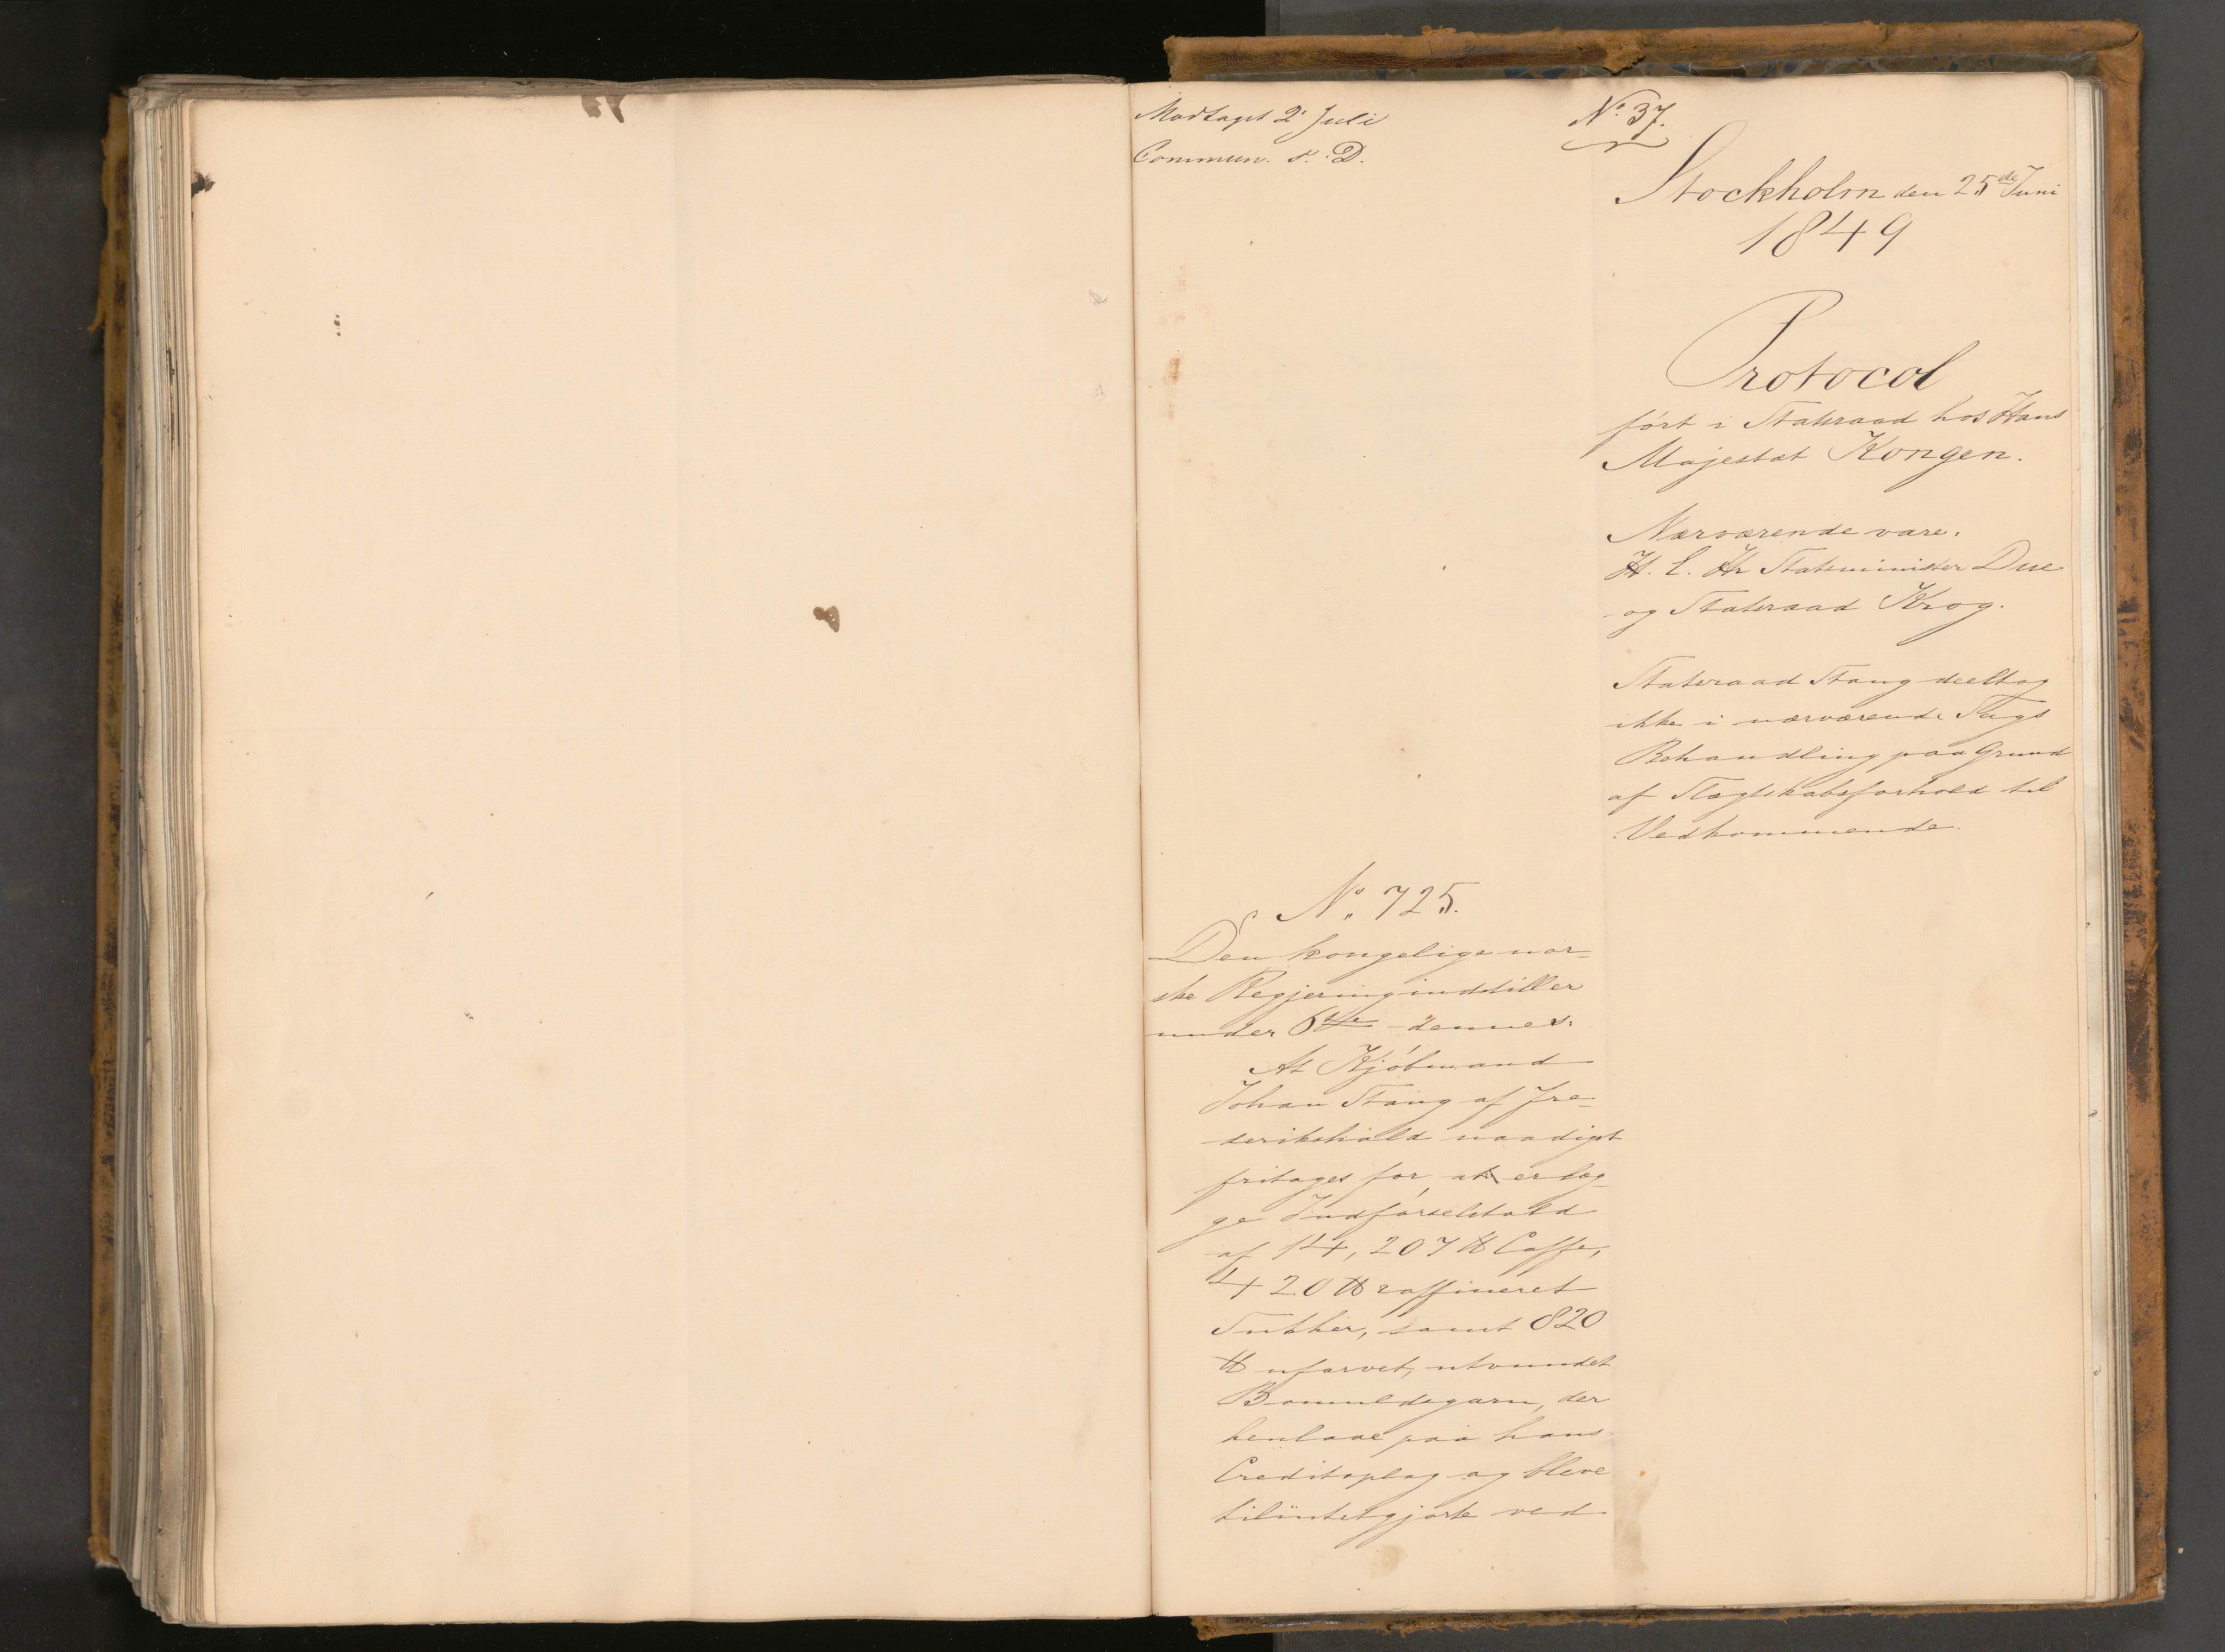 Modtaget 2' Juli
Commun. s. D.
No 37.
Stockholm den 25de Juni
1849
Protocol
ført i Statsraad hos Hans
Majestæt Kongen.
Nærværende vare.
H. E. Hr Statsminister Due
og Statsraad Krog.
Statsraad Stang deeltog
ikke i nærværende Sags
Behandling paa Grund
af Slægtskabsforhold til
Vedkommende.
No. 725.
Den kongelige nor-
ske Regjering indstiller
under 6te dennes.
At Kjøbmand
Johan Stang af Fre-
derikshald naadigst
fritages for at erlæg-
ge Indførselstold
af 14,207 ℔ Caffe,
420 ℔ raffineret
Sukker, samt 820
℔ ufarvet, utvundet
Bomuldsgarn, der
henlaae paa hans
Creditoplag og bleve
tilintetgjorte ved